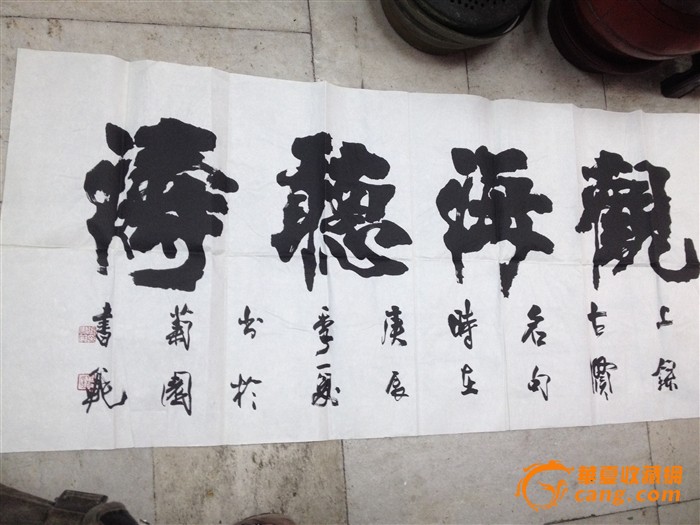 觀海聽濤
上錄
古賢
名句
時在
庚辰
季夏
書於
菊園
書
華夏收藏網
cang.com